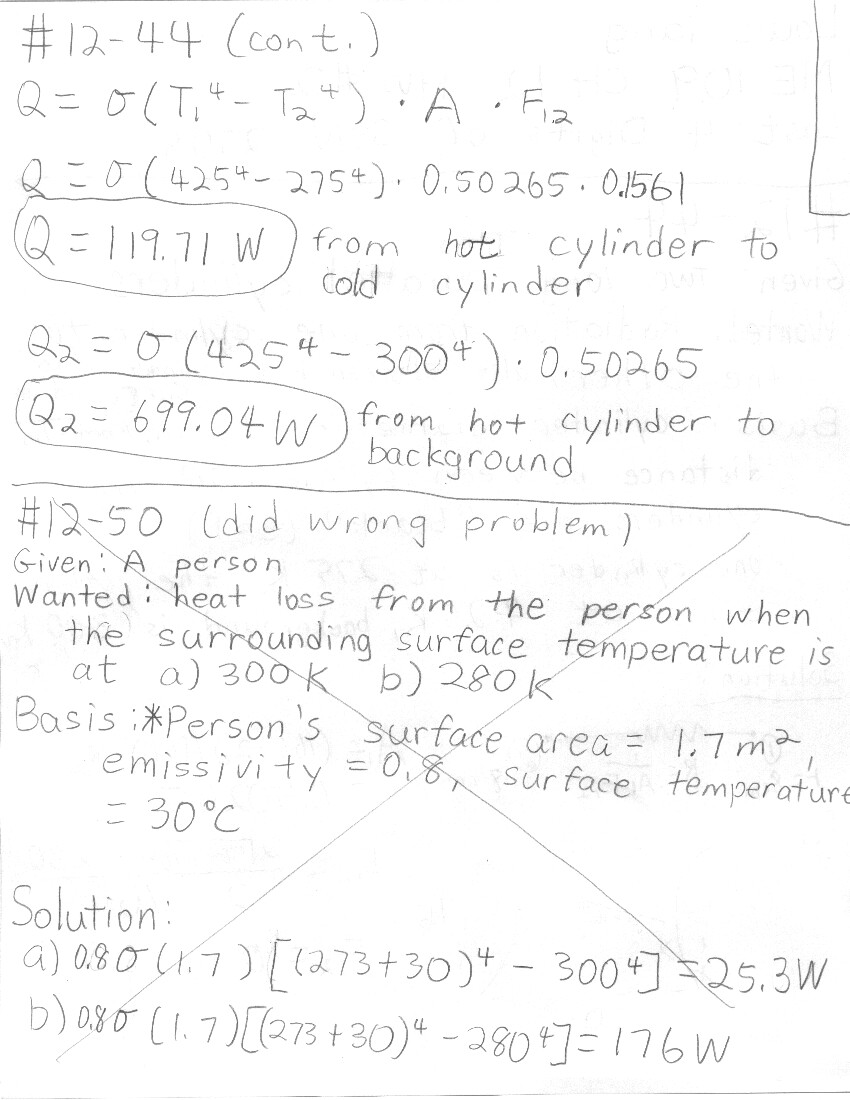 #12-44 (cont.)
Q = σ(T₁⁴ - T₂⁴) · A · F₁₂
Q = σ(425⁴ - 275⁴) · 0.50265 · 0.1561
Q = 119.71 W from hot cylinder to
cold cylinder
Q₂ = σ(425⁴ - 300⁴) · 0.50265
Q₂ = 699.04W from hot cylinder to
background
#12-50 (did wrong problem)
Given: A person
Wanted: heat loss from the person when
the surrounding surface temperature is
at a) 300K b) 280K
Basis: *Person's surface area = 1.7m²,
emissivity = 0.8, surface temperature
= 30°C
Solution:
a) 0.8σ(1.7)[(273+30)⁴ - 300⁴] = 25.3W
b) 0.8σ(1.7)[(273+30)⁴ - 280⁴] = 176W